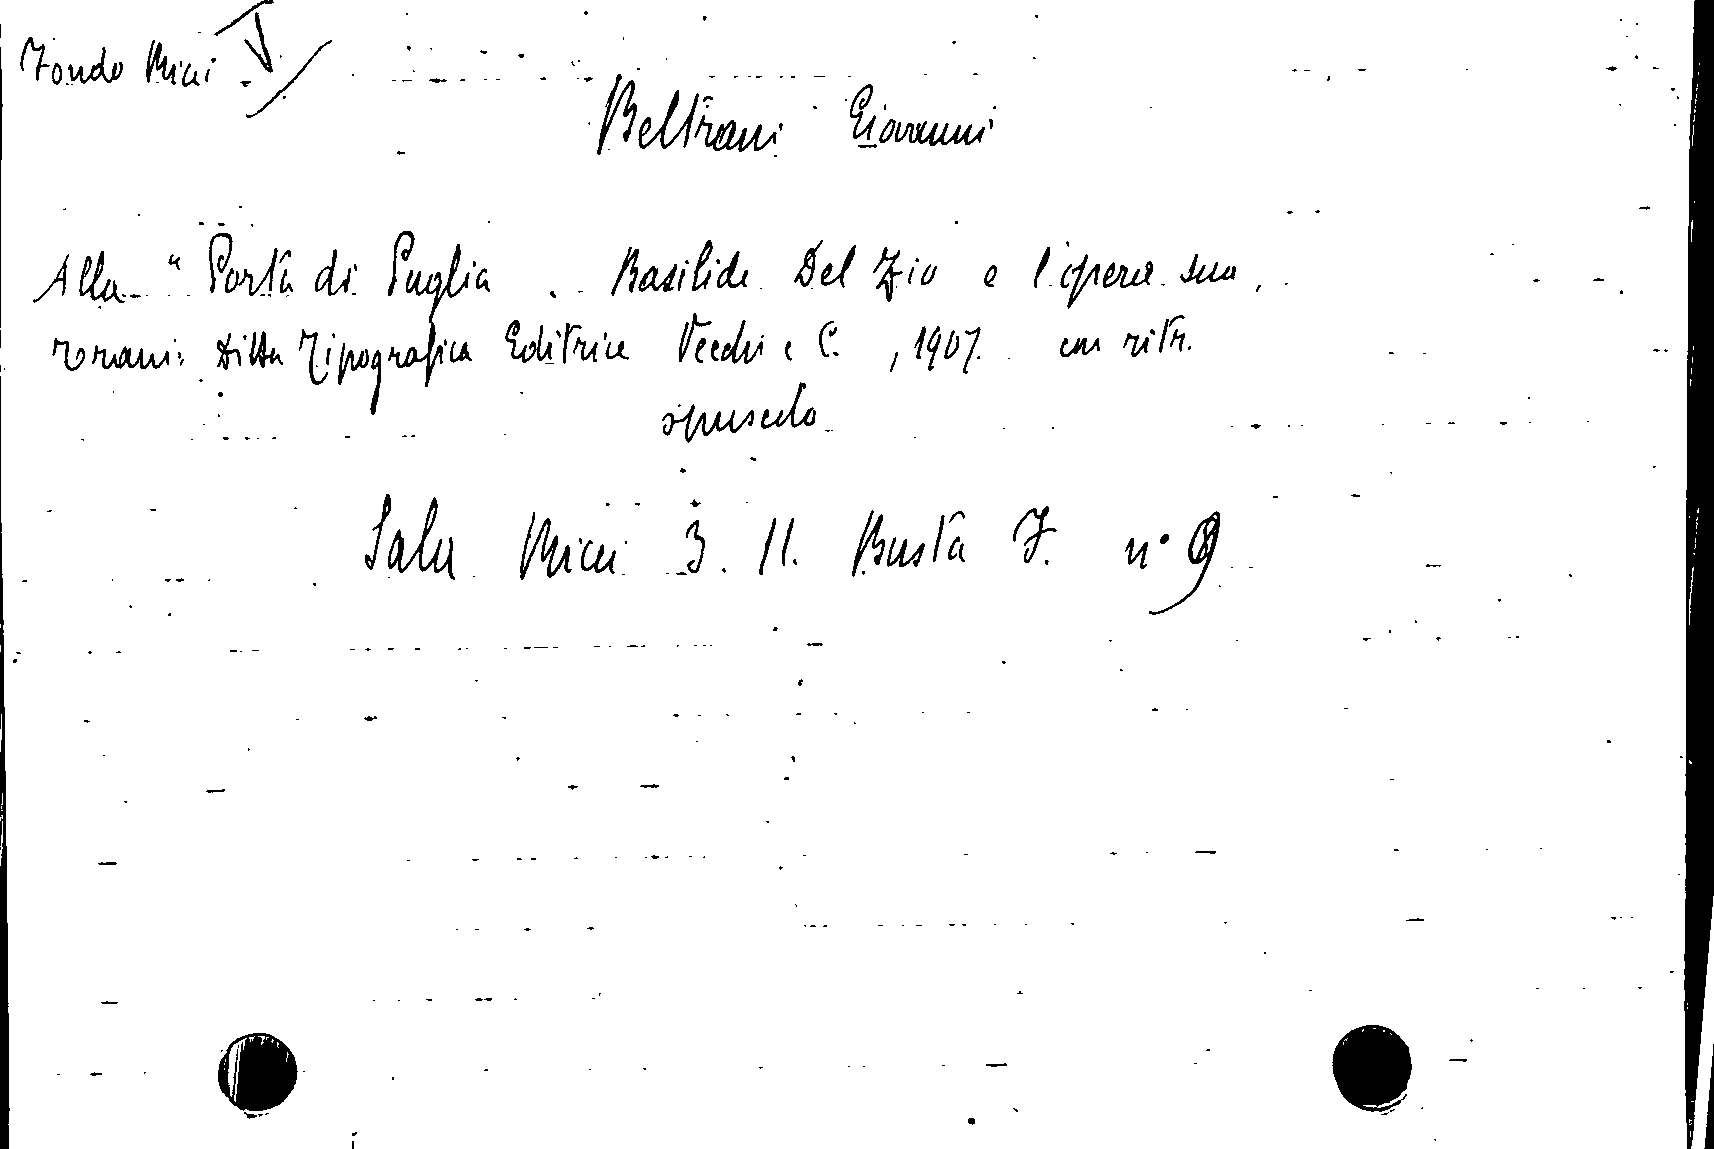 Fondo Ricci V
Beltrani Giovanni
Alla " Porta di Puglia . Basilide Del Zio e l'opera sua,
Trani: Ditta Tipografica Editrice Vecchi e C. , 1907. con ritr.
opuscolo
Sala Ricci 3. 11. Busta F. n° 9